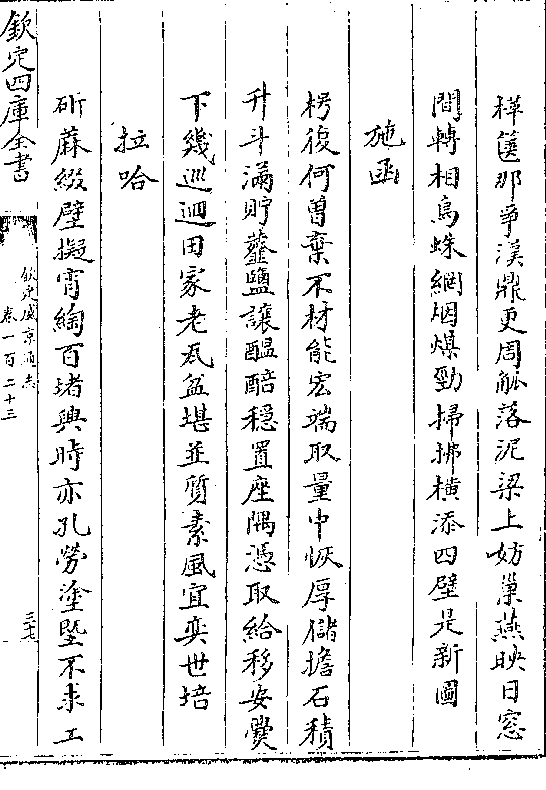 樺篋那爭漢鼎更周觚落泥梁上妨巢燕映日窓
間轉相烏蛛網烟煤勁掃拂橫添四壁是新圖
施函
枵復何曽棄不材能宏端取量中恢厚儲擔石積
升斗滿貯虀鹽讓醖醅穩置座隅憑取給移安爨
下幾巡迴田家老瓦盆堪並質素風宜奕世培
拉哈
斫蔴綴壁擬宵綯百堵興時亦孔勞塗墍不求工
欽定四庫全書
欽定盛京通志
卷一百二十三
三十七